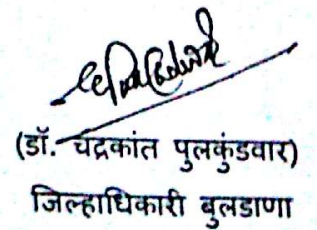 (डॉ. चंद्रकांत पुलकुंडवार)
जिल्हाधिकारी बुलडाणा